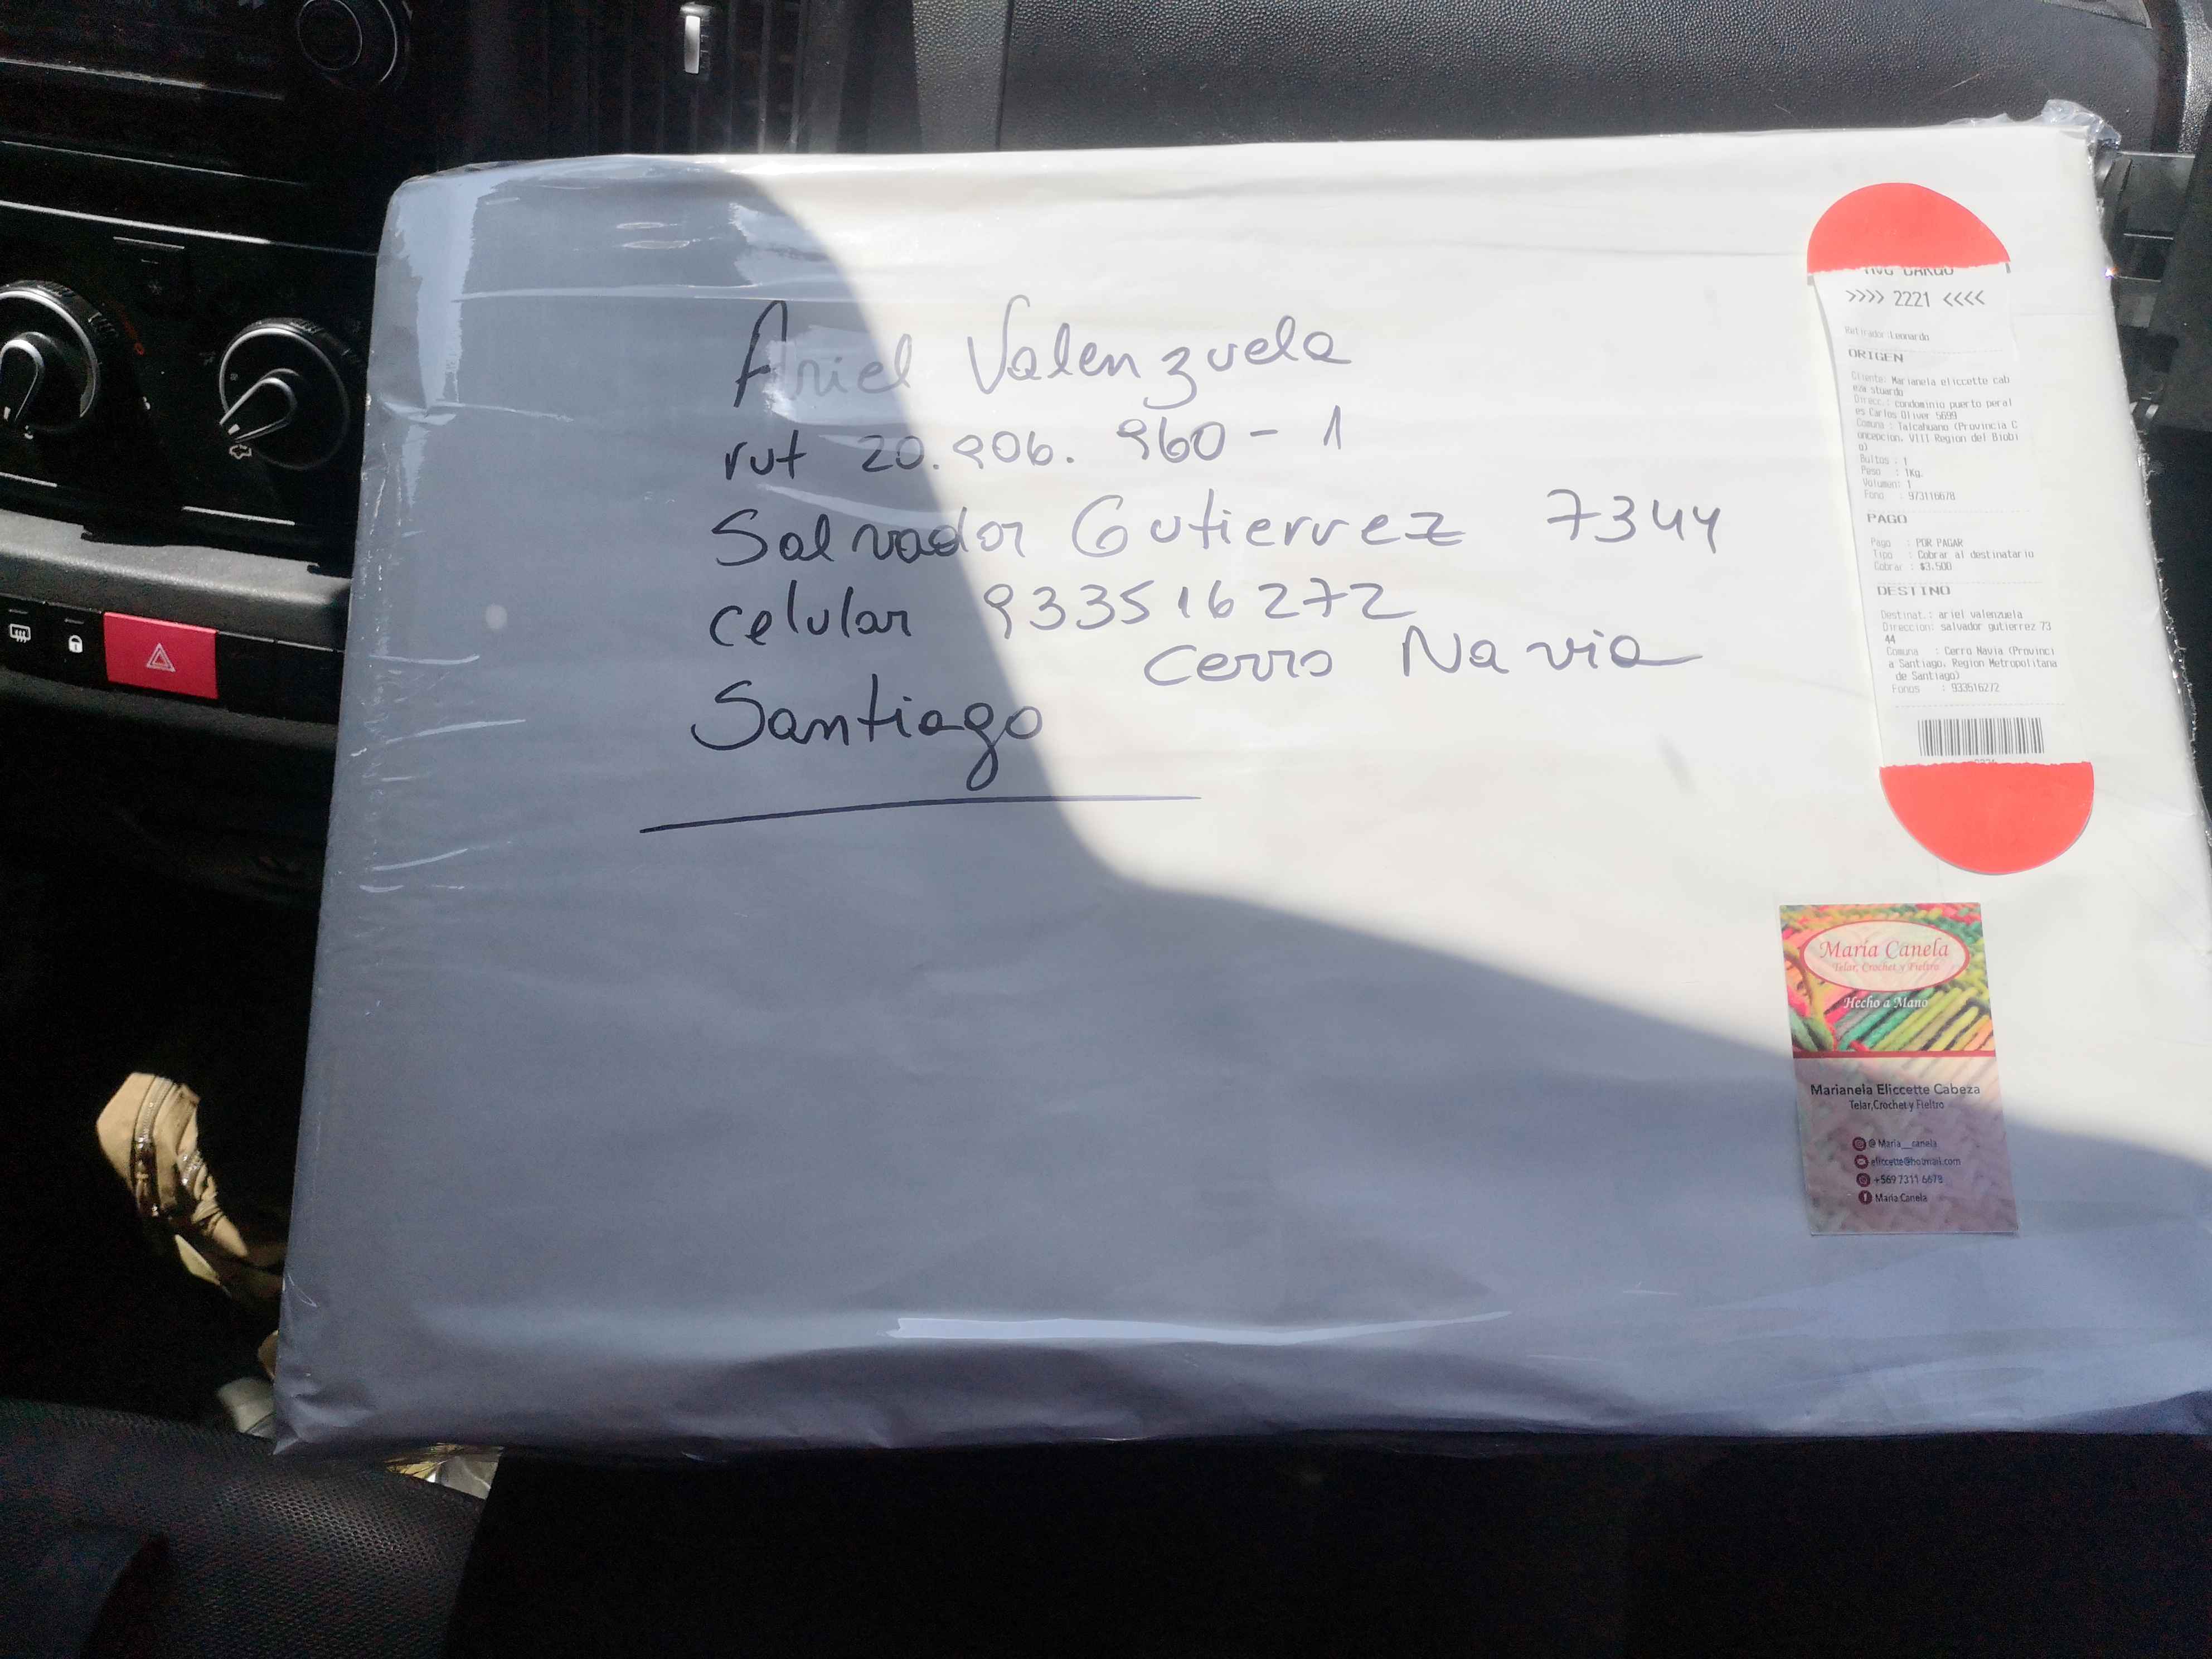 Ariel Valenzuela
rut 20.906.960-1
Salvador Gutierrez 7344
celular 933516272
Cerro Navia
Santiago
>>>> 2221 <<<<
Retirador:Leonardo
ORIGEN
Cliente: Marianela eliccette cab
eza stuardo
Direcc.: condominio puerto peral
es Carlos Oliver 5699
Comuna : Talcahuano (Provincia C
oncepcion, VIII Region del Biobi
o)
Bultos : 1
Peso : 1Kg.
Volumen: 1
Fono : 973116678
PAGO
Pago : POR PAGAR
Tipo : Cobrar al destinatario
Cobrar : $3.500
DESTINO
Destinat.: ariel valenzuela
Direccion: salvador gutierrez 73
44
Comuna : Cerro Navia (Provinci
a Santiago, Region Metropolitana
de Santiago)
Fonos : 933516272
María Canela
Telar, Crochet y Fieltro
Hecho a Mano
Marianela Eliccette Cabeza
Telar,Crochet y Fieltro
@Maria__canela
eliccette@hotmail.com
+569 7311 6678
Maria Canela